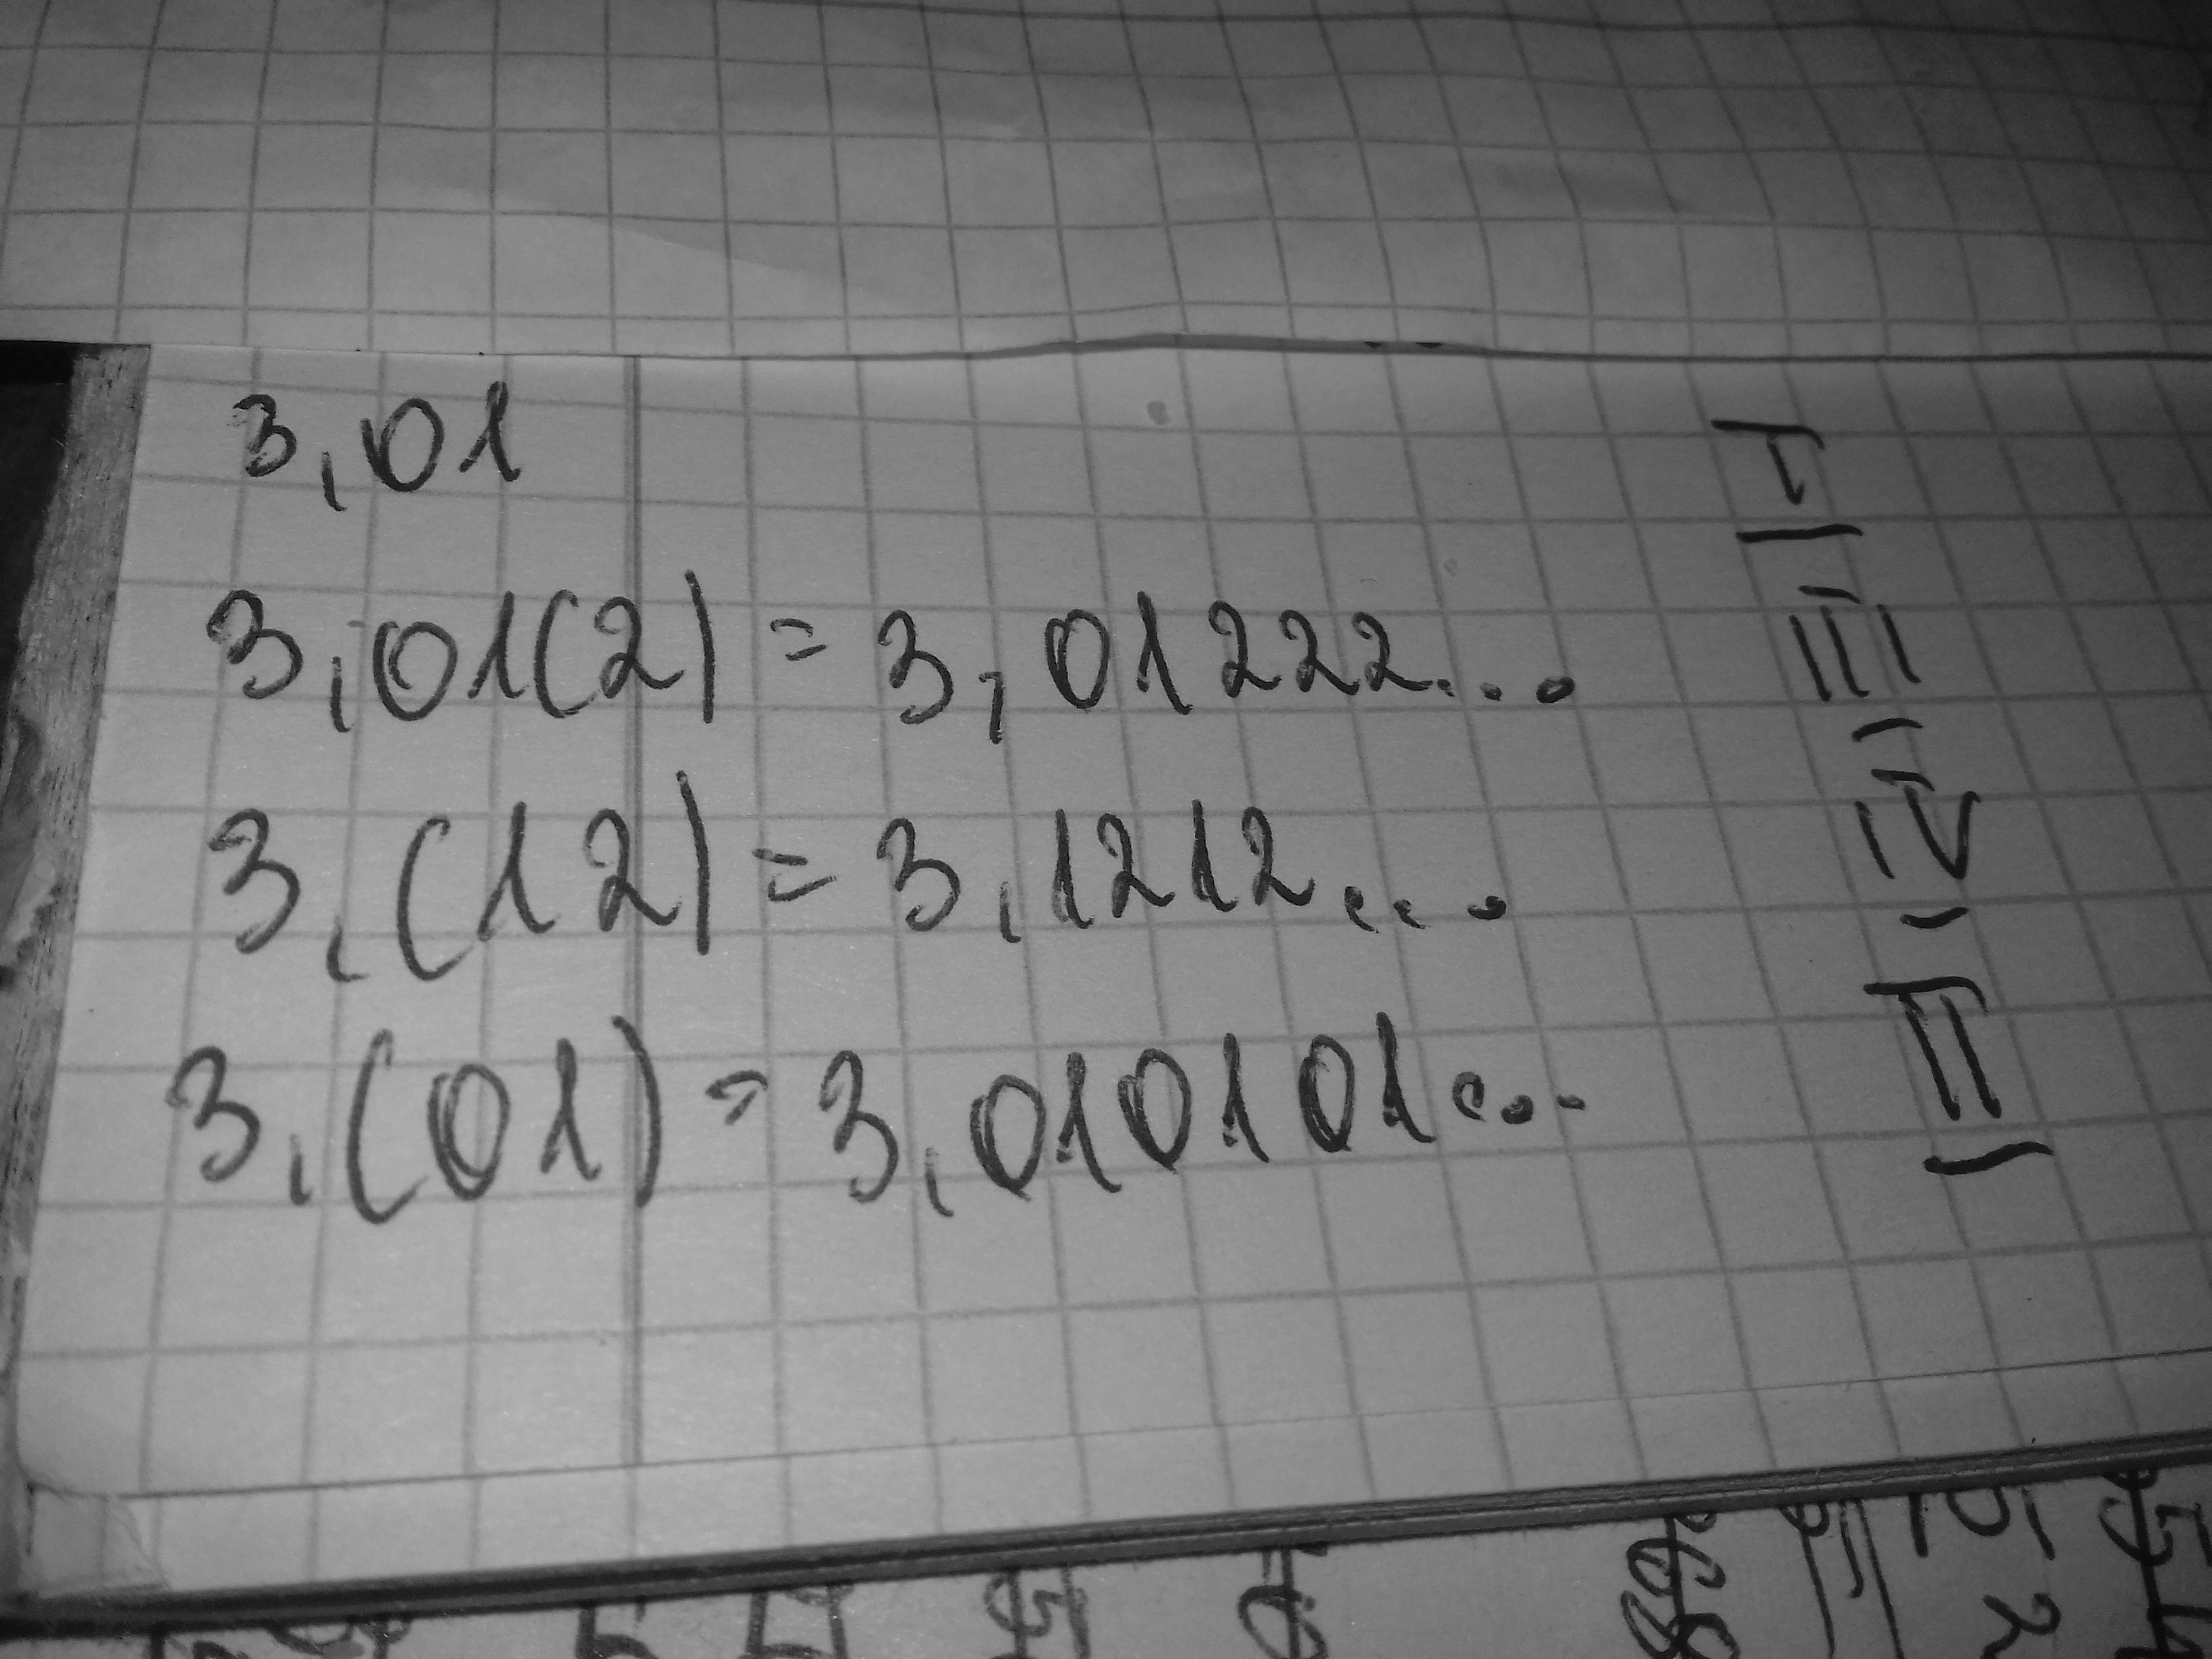 3,01 I
3,01(2) = 3,01222... III
3,(12) = 3,1212... IV
3,(01) = 3,010101... II